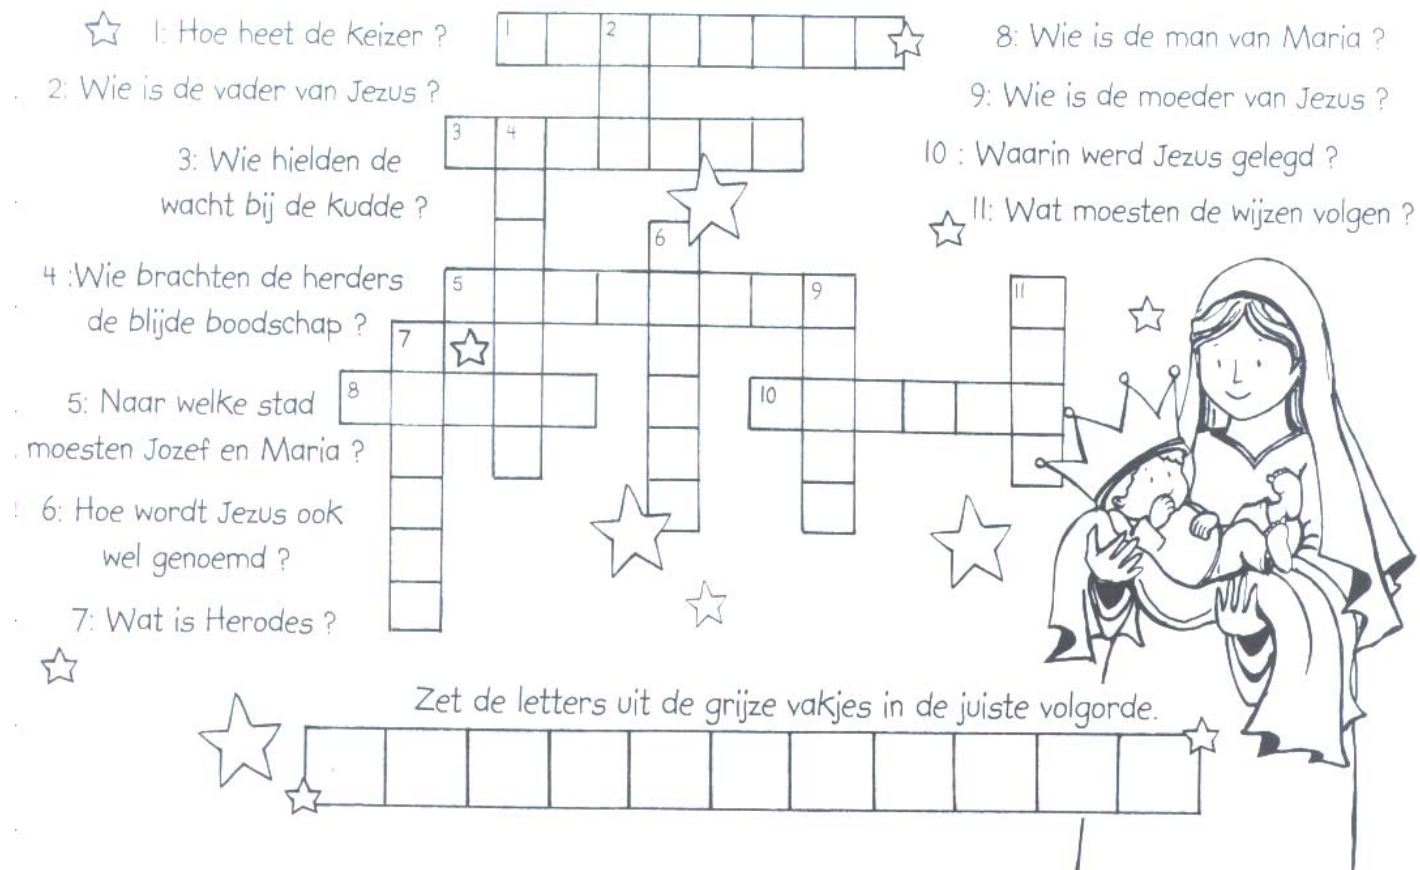 1: Hoe heet de keizer ?
2: Wie is de vader van Jezus ?
3: Wie hielden de
wacht bij de kudde ?
4 :Wie brachten de herders
de blijde boodschap ?
5: Naar welke stad
moesten Jozef en Maria ?
6: Hoe wordt Jezus ook
wel genoemd ?
7: Wat is Herodes ?
8: Wie is de man van Maria ?
9: Wie is de moeder van Jezus ?
10 : Waarin werd Jezus gelegd ?
11: Wat moesten de wijzen volgen ?
1
2
3
4
6
5
9
11
7
8
10
Zet de letters uit de grijze vakjes in de juiste volgorde.